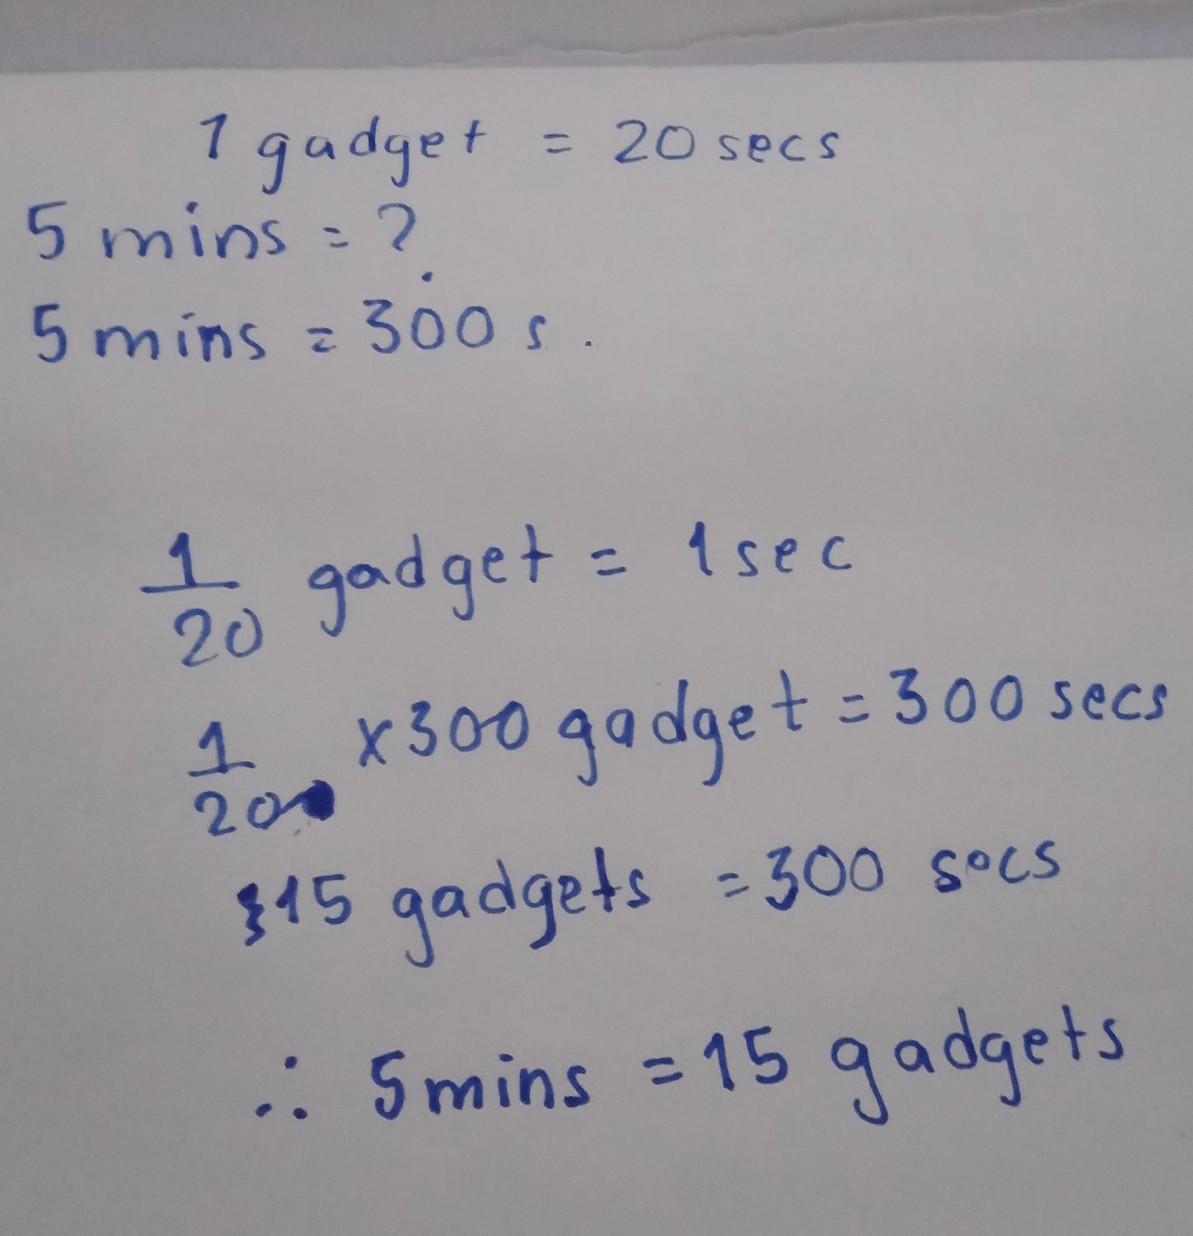 1 gadget = 20 secs
5 mins = ?
5 mins = 300 s.
1/20 gadget = 1 sec
1/20 x 300 gadget = 300 secs
15 gadgets = 300 secs
∴ 5 mins = 15 gadgets